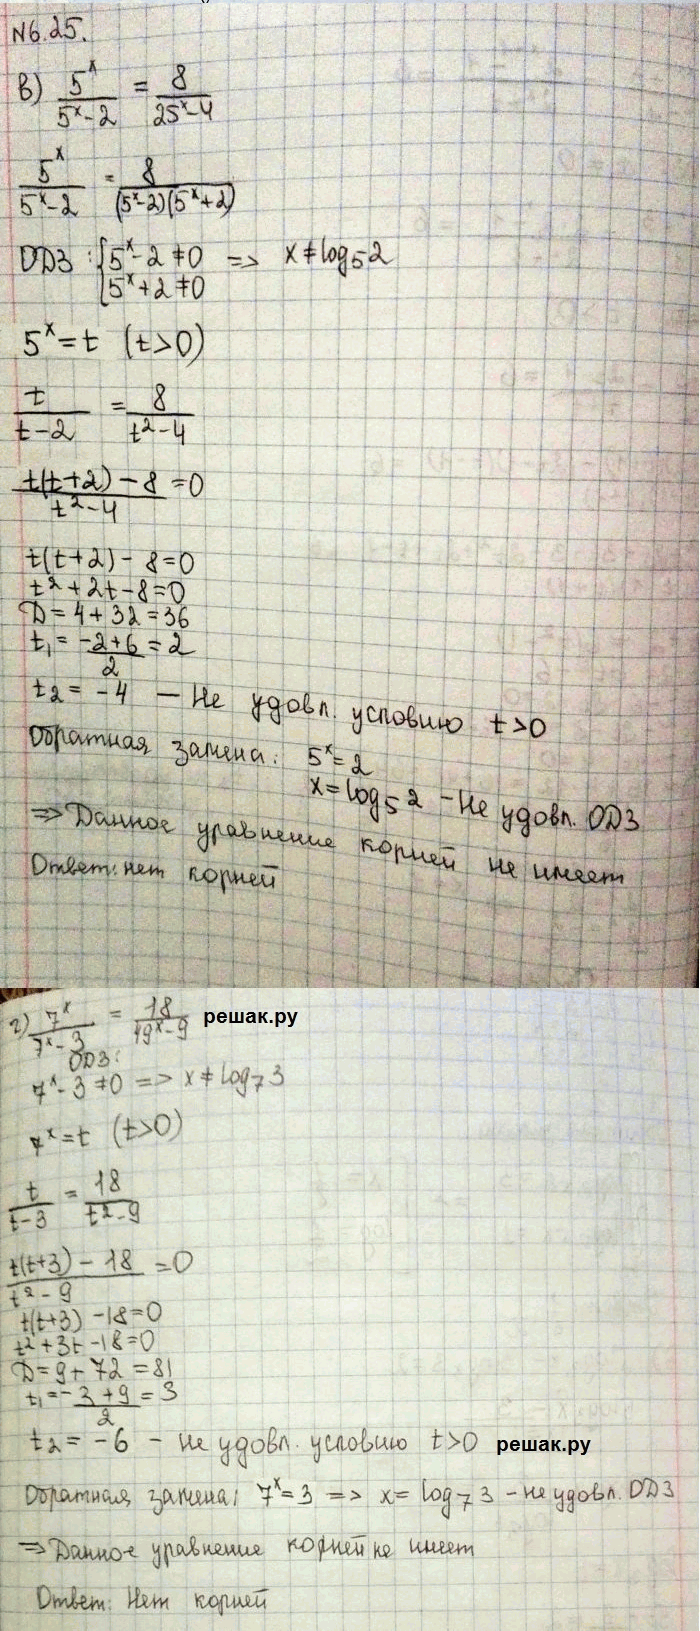 №6.25.
в) 5^x/(5^x-2) = 8/(25^x-4)
5^x/(5^x-2) = 8/((5^x-2)(5^x+2))
ОДЗ: {5^x-2≠0 => x≠log₅2
{5^x+2≠0
5^x=t (t>0)
t/(t-2) = 8/(t²-4)
(t(t+2)-8)/(t²-4) = 0
t(t+2)-8=0
t²+2t-8=0
D=4+32=36
t₁=(-2+6)/2=2
t₂=-4 - Не удовл. условию t>0
Обратная замена: 5^x=2
x=log₅2 - Не удовл. ОДЗ
=> Данное уравнение корней не имеет
Ответ: нет корней
г) 7^x/(7^x-3) = 18/(49^x-9) решак.ру
ОДЗ:
7^x-3≠0 => x≠log₇3
7^x=t (t>0)
t/(t-3) = 18/(t²-9)
(t(t+3)-18)/(t²-9) = 0
t(t+3)-18=0
t²+3t-18=0
D=9+72=81
t₁=(-3+9)/2=3
t₂=-6 - не удовл. условию t>0 решак.ру
Обратная замена: 7^x=3 => x=log₇3 - не удовл. ОДЗ
=> Данное уравнение корней не имеет
Ответ: Нет корней